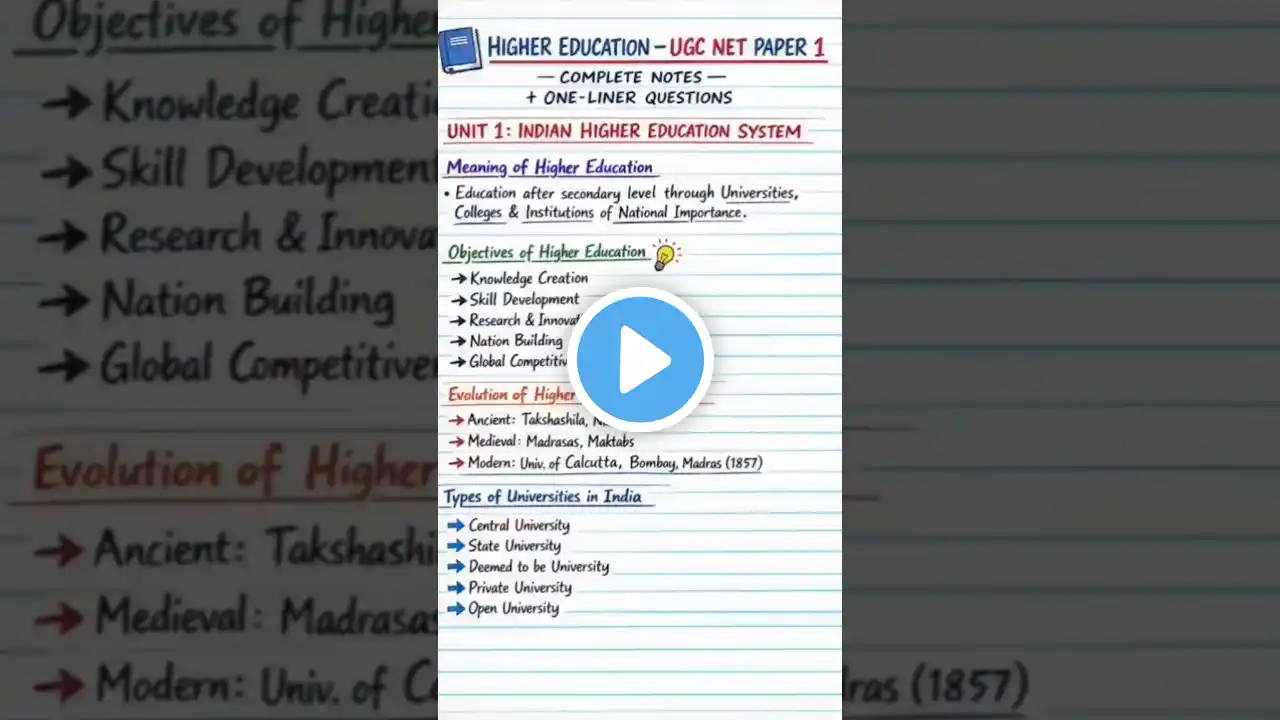 HIGHER EDUCATION – UGC NET PAPER 1
— COMPLETE NOTES —
+ ONE-LINER QUESTIONS
UNIT 1: INDIAN HIGHER EDUCATION SYSTEM
Meaning of Higher Education
• Education after secondary level through Universities,
Colleges & Institutions of National Importance.
Objectives of Higher Education
→ Knowledge Creation
→ Skill Development
→ Research &
→ Nation Building
→ Global
Evolution of Higher
→ Ancient: Takshashila,
→ Medieval: Madrasas, Maktabs
→ Modern: Univ. of Calcutta, Bombay, Madras (1857)
Types of Universities in India
→ Central University
→ State University
→ Deemed to be University
→ Private University
→ Open University